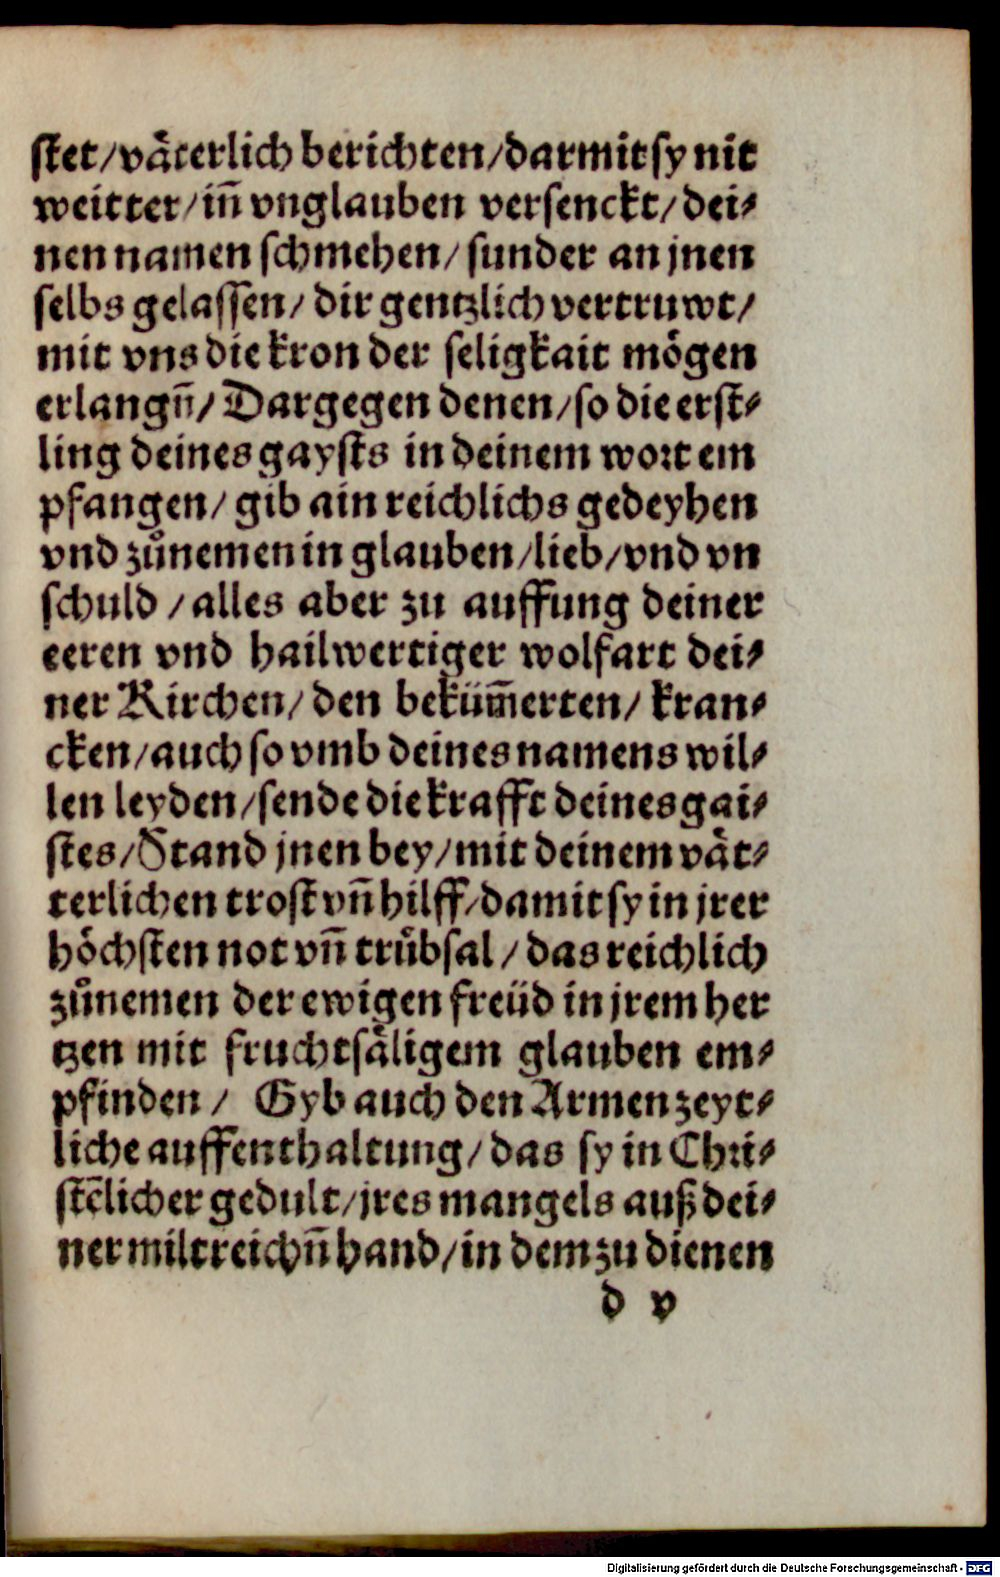 stet/vaͤterlich berichten/darmit sy nit
weitter/iñ vnglauben versenckt/dei⸗
nen namen schmehen/sunder an jnen
selbs gelassen/dir gentzlich vertruwt/
mit vns die kron der seligkait moͤgen
erlangn̄/Dargegen denen/so die erst⸗
ling deines gaysts in deinem wort em
pfangen/gib ain reichlichs gedeyhen
vnd zuͦnemen in glauben/lieb/vnd vn
schuld/alles aber zu auffung deiner
eeren vnd hailwertiger wolfart dei⸗
ner Kirchen/den beküm̄erten/kran⸗
cken/auch so vmb deines namens wil⸗
len leyden/sende die krafft deines gai⸗
stes/Stand jnen bey/mit deinem vaͤt⸗
terlichen trost vn̄ hilff/damit sy in jrer
hoͤchsten not vn̄ truͤbsal/das reichlich
zuͦnemen der ewigen freüd in jrem her
tzen mit fruchtsaͤligem glauben em⸗
pfinden/ Gyb auch den Armen zeyt⸗
liche auffenthaltung/das sy in Chri⸗
stēlicher gedult/jres mangels auß dei⸗
ner miltreichn̄ hand/in dem zu dienen
d v
Digitalisierung gefördert durch die Deutsche Forschungsgemeinschaft - DFG